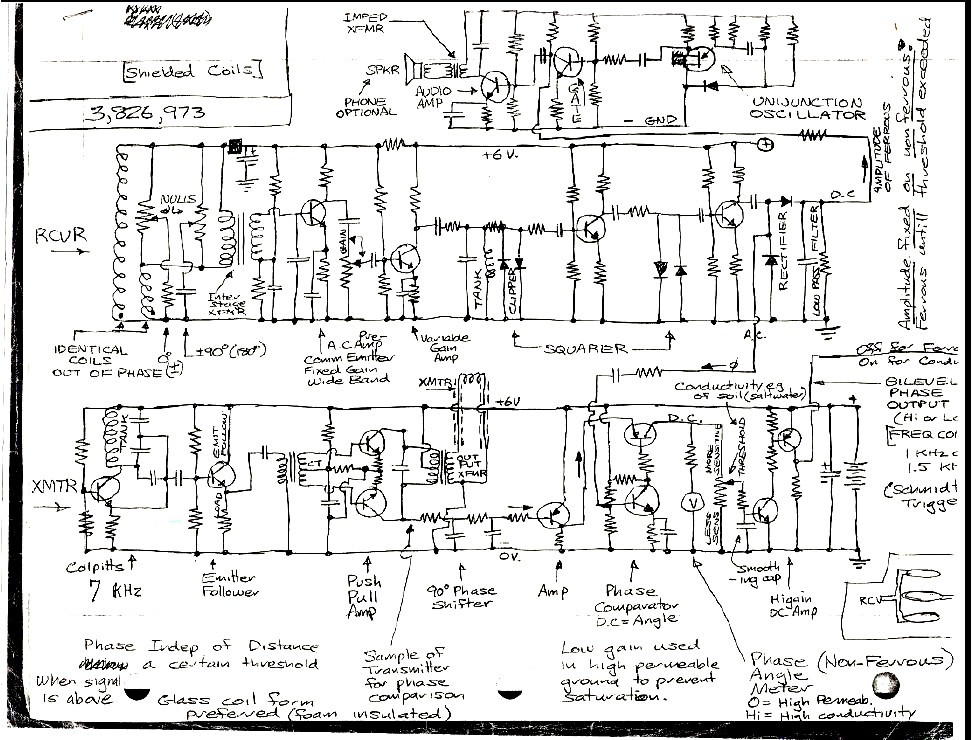 IMPED
XFMR
[Shielded Coils]
SPKR
PHONE
OPTIONAL
AUDIO
AMP
GATE
UNIJUNCTION
OSCILLATOR
3,826,973
- GND
+6V.
+
AMPLITUDE
OF FERROUS
Amplitude fixed on nonferrous.
Ferrous untill threshold exceeded
D.C
RCVR
NULLS
GAIN
TANK
CLIPPER
RECTIFIER
LOW PASS FILTER
Inter
Stage
XFMR
IDENTICAL
COILS
OUT OF PHASE
0° (±)
±90° (180°)
Pre
A.C. Amp
Comm Emitter
Fixed Gain
Wide Band
Variable
Gain
Amp
SQUARER
A.C.
Φ
XMTR
+6V
Conductivity eg
of soil (saltwater)
Off for Ferr
On for Condu
BILEVEL
PHASE
OUTPUT
(Hi or Lo
FREQ CO
1 KHz
1.5 KH
(Schmidt
Trigge
TANK
EMIT
FOLLOW
LOAD
CT
OUT
PUT
XFMR
D.C.
V
MORE
SENSITIVE
LESS
SENS
THRESHOLD
+
XMTR
0V.
Colpitts
7 KHz
Emitter
Follower
Push
Pull
Amp
90° Phase
Shifter
Amp
Phase
Comparator
D.C = Angle
Smooth
-ing cap
Higain
DC Amp
RCV
Phase Indep of Distance
a certain threshold
when signal
is above
Glass coil form
preferred (foam insulated)
Sample of
Transmitter
for phase
comparison
Low gain used
in high permeable
ground to prevent
saturation.
Phase (Non-Ferrous)
Angle
Meter
0 = High Permeab.
Hi = High conductivity